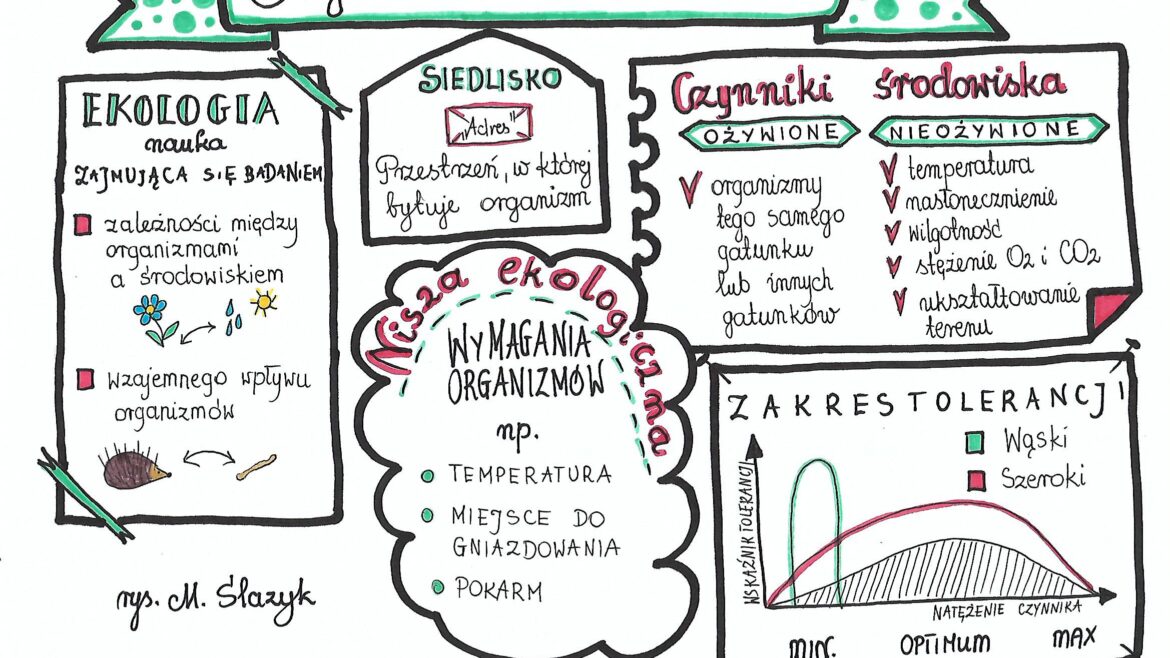 EKOLOGIA
nauka
ZAJMUJĄCA SIĘ BADANIEM
zależności między
organizmami
a środowiskiem
wzajemnego wpływu
organizmów
rys. M. Ślazyk
SIEDLISKO
"Adres"
Przestrzeń, w której
bytuje organizm
Nisza ekologiczna
WYMAGANIA
ORGANIZMÓW
np.
TEMPERATURA
MIEJSCE DO
GNIAZDOWANIA
POKARM
Czynniki środowiska
OŻYWIONE
organizmy
tego samego
gatunku
lub innych
gatunków
NIEOŻYWIONE
temperatura
nasłonecznienie
wilgotność
stężenie O2 i CO2
ukształtowanie
terenu
ZAKRES TOLERANCJI
Wąski
Szeroki
WSKAŹNIK TOLERANCJI
NATĘŻENIE CZYNNIKA
MIN. OPTIMUM MAX